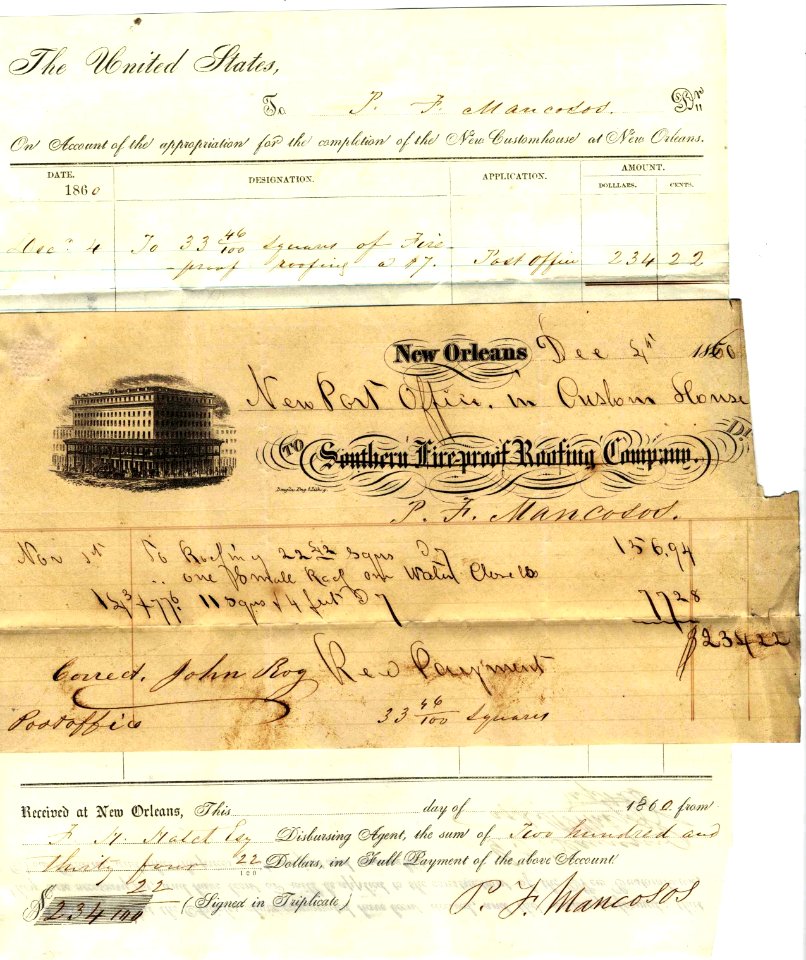 The United States,
To P. F. Mancosos. Dr
On Account of the appropriation for the completion of the New Customhouse at New Orleans.
DATE. DESIGNATION. APPLICATION. AMOUNT.
1860 DOLLARS. CENTS.
Decr. 4 To 33 46/100 Squares of Fire- Post Office 234 22
-proof roofing a $7.
New Orleans Dec 4th 1860
New Post Office. in Custom House
TO Southern Fireproof Roofing Company. Dr
P. F. Mancosos.
Nov 1st To Roofing 22 42 Sqrs 7 156.94
one Roof on Water Closets
11 Sqrs & 4 feet 7 77 28
$234 22
Correct. John Roy Rec Payment
Postoffice 33 46/100 Squares
Received at New Orleans, This day of 1860 from
F. H. Hatch Esq Disbursing Agent, the sum of Two hundred and
thirty four 22/100 Dollars, in Full Payment of the above Account
$ 234 22/100 (Signed in Triplicate) P. F. Mancosos